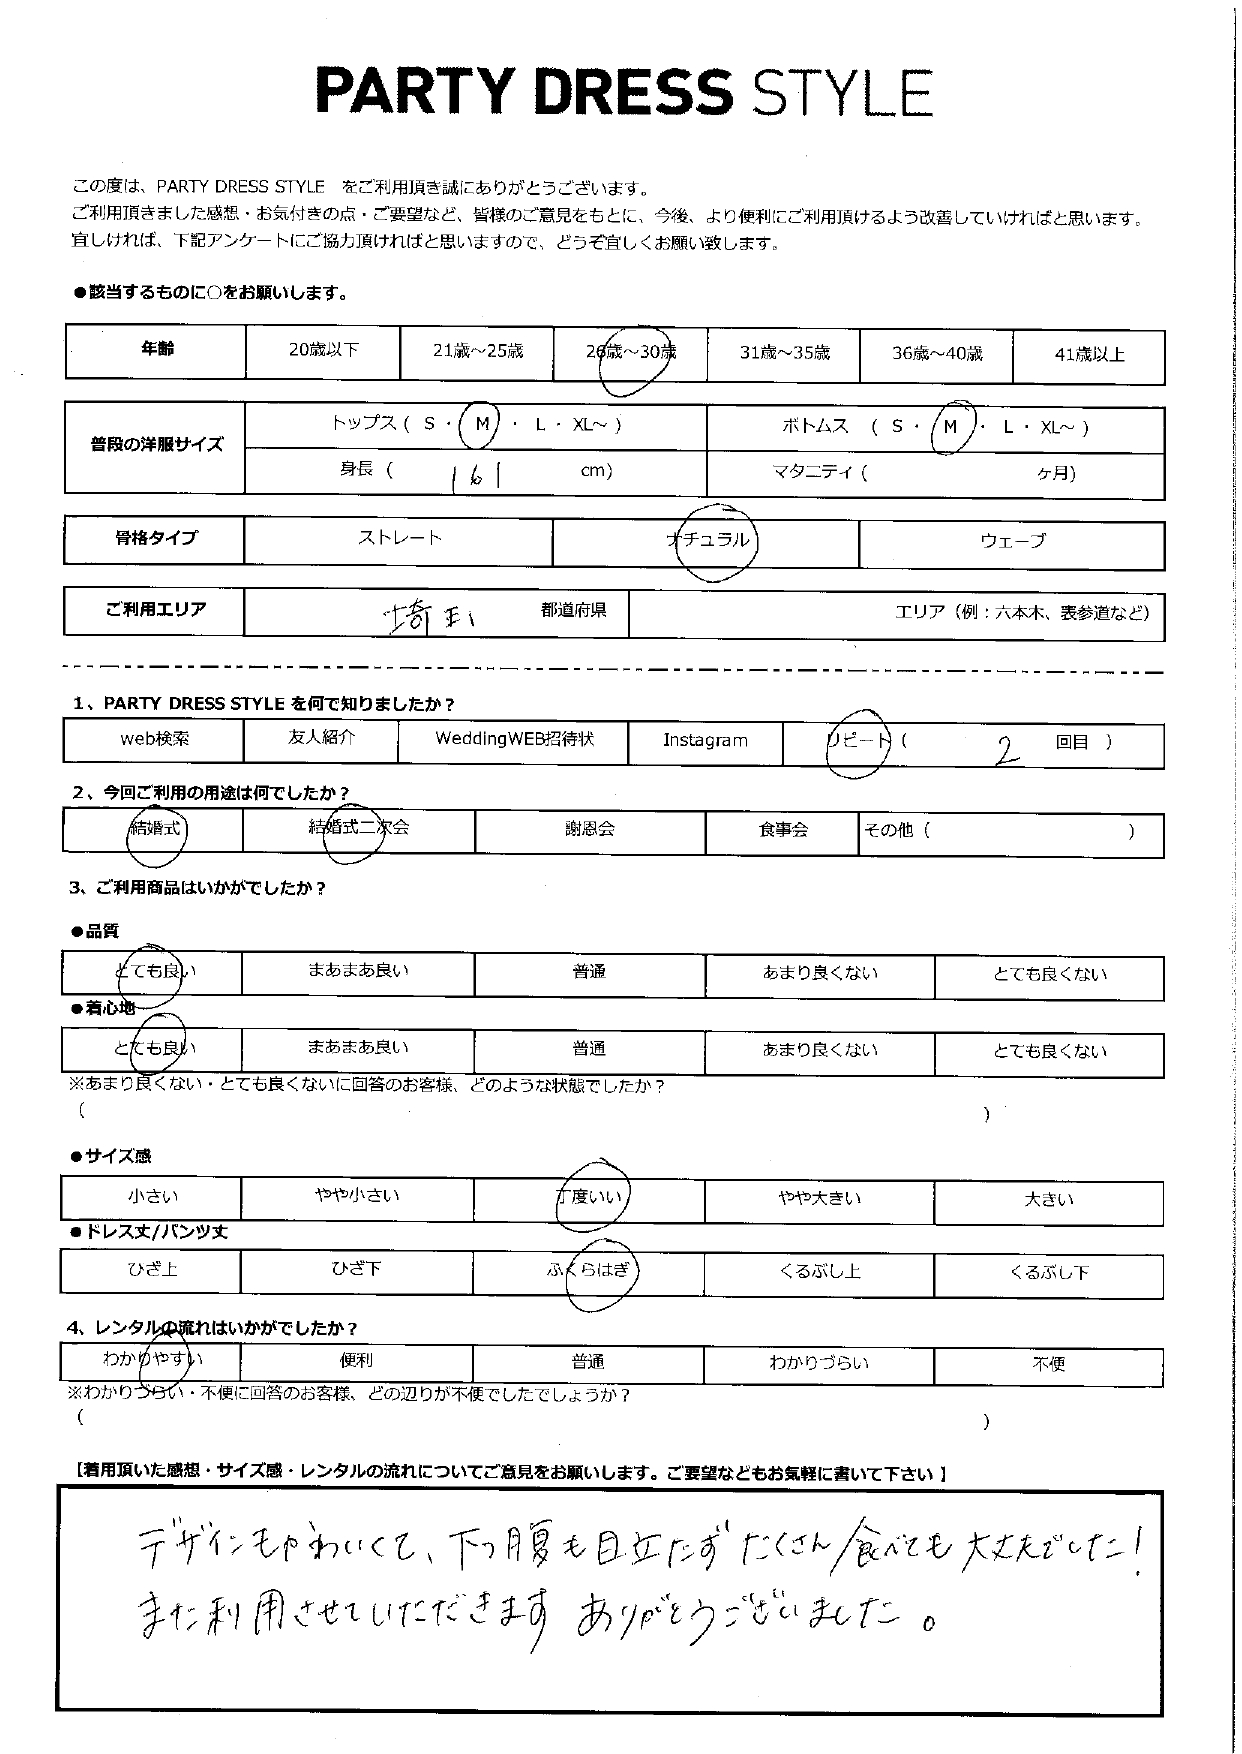 PARTY DRESS STYLE
この度は、PARTY DRESS STYLE　をご利用頂き誠にありがとうございます。
ご利用頂きました感想・お気付きの点・ご要望など、皆様のご意見をもとに、今後、より便利にご利用頂けるよう改善していければと思います。
宜しければ、下記アンケートにご協力頂ければと思いますので、どうぞ宜しくお願い致します。
●該当するものに○をお願いします。
年齢 20歳以下 21歳～25歳 26歳～30歳 31歳～35歳 36歳～40歳 41歳以上
普段の洋服サイズ トップス ( S ・ M ・ L ・ XL～ ) ボトムス ( S ・ M ・ L ・ XL～ )
身長 ( 161 cm) マタニティ ( ヶ月)
骨格タイプ ストレート ナチュラル ウェーブ
ご利用エリア 埼玉 都道府県 エリア（例：六本木、表参道など）
1、PARTY DRESS STYLE を何で知りましたか？
web検索 友人紹介 WeddingWEB招待状 Instagram リピート ( 2 回目 )
2、今回ご利用の用途は何でしたか？
結婚式 結婚式二次会 謝恩会 食事会 その他 ( )
3、ご利用商品はいかがでしたか？
●品質
とても良い まあまあ良い 普通 あまり良くない とても良くない
●着心地
とても良い まあまあ良い 普通 あまり良くない とても良くない
※あまり良くない・とても良くないに回答のお客様、どのような状態でしたか？
( )
●サイズ感
小さい やや小さい 丁度いい やや大きい 大きい
●ドレス丈/パンツ丈
ひざ上 ひざ下 ふくらはぎ くるぶし上 くるぶし下
4、レンタルの流れはいかがでしたか？
わかりやすい 便利 普通 わかりづらい 不便
※わかりづらい・不便に回答のお客様、どの辺りが不便でしたでしょうか？
( )
【着用頂いた感想・サイズ感・レンタルの流れについてご意見をお願いします。ご要望などもお気軽に書いて下さい】
デザインもかわいくて、下っ腹も目立たずたくさん食べても大丈夫でした！
また利用させていただきます ありがとうございました。